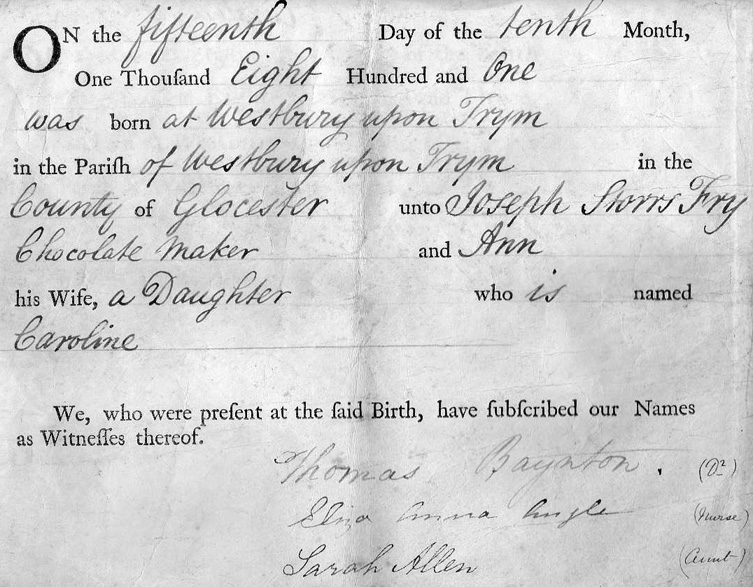 ON the fifteenth Day of the tenth Month,
One Thouſand Eight Hundred and One
was born at Westbury upon Trym
in the Pariſh of Westbury upon Trym in the
County of Glocester unto Joseph Storrs Fry
Chocolate Maker and Ann
his Wife, a Daughter who is named
Caroline
We, who were preſent at the ſaid Birth, have ſubſcribed our Names
as Witneſſes thereof.
Thomas Baynton. (Dr)
Eliza Anna Angle (Nurse)
Sarah Allen (Aunt)